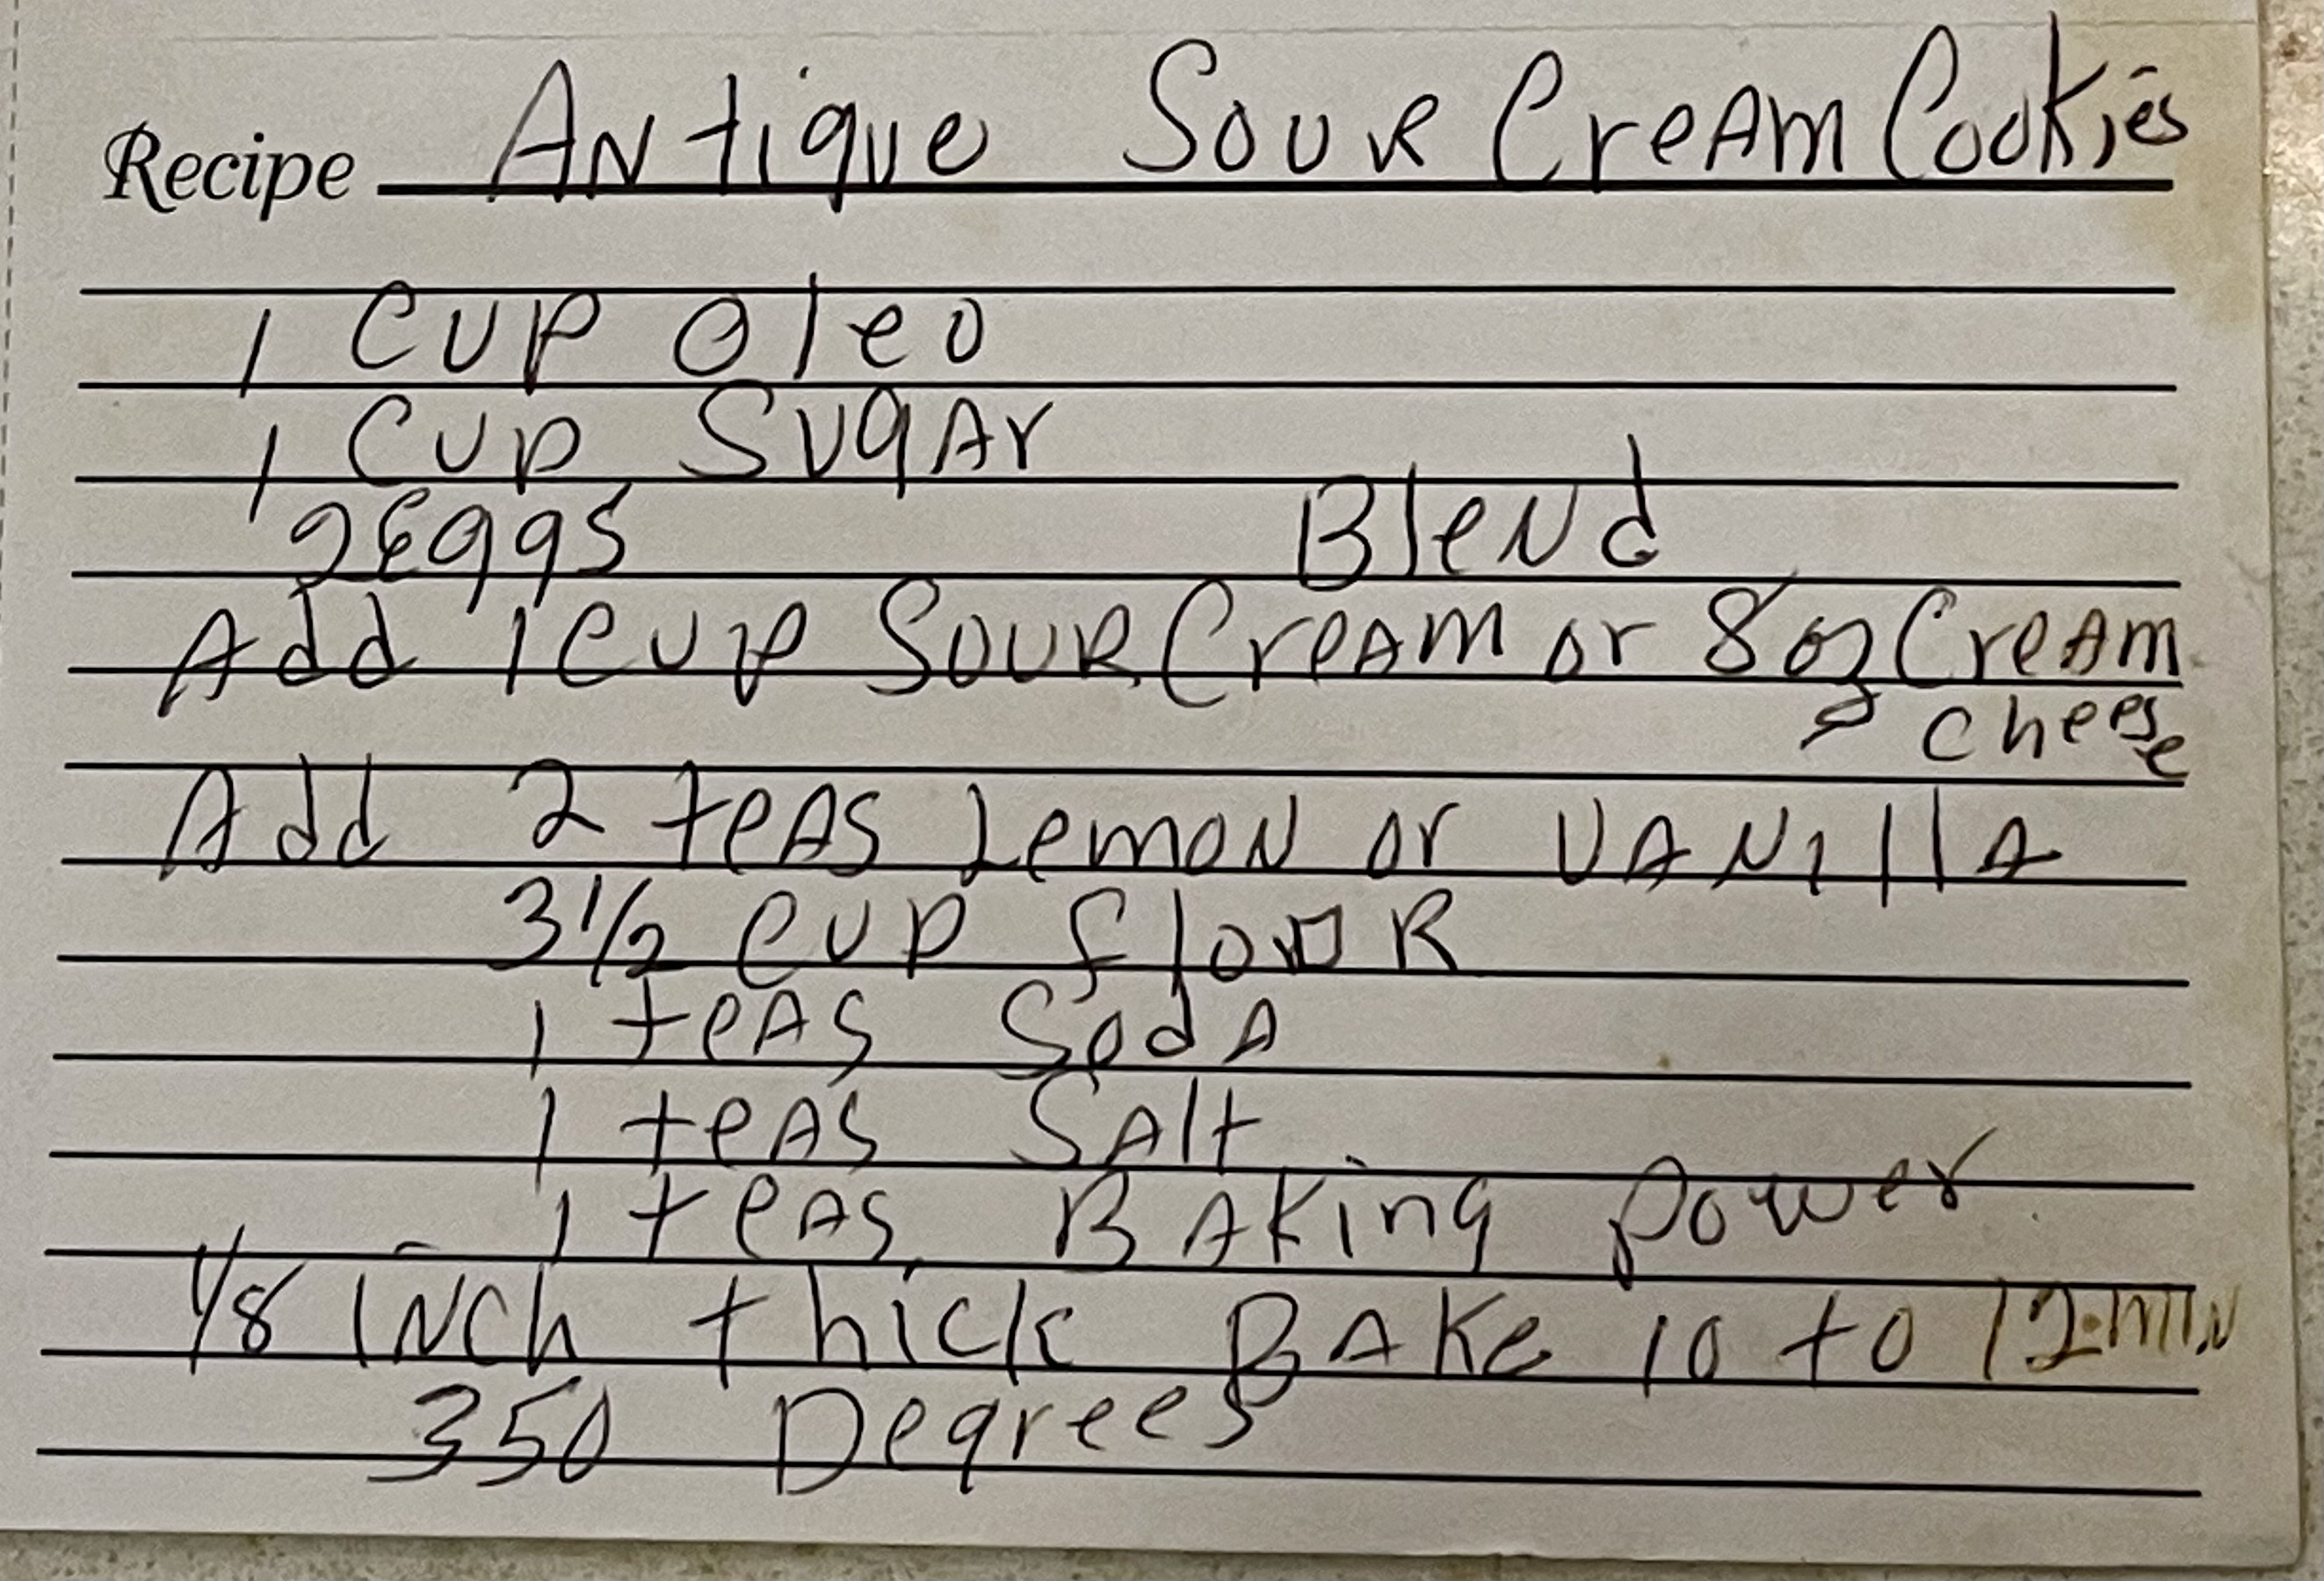 Recipe Antique Sour Cream Cookies
1 Cup Oleo
1 Cup Sugar
2 Eggs Blend
Add 1 Cup Sour Cream or 8 oz Cream
cheese
Add 2 teas Lemon or VANillA
3 1/2 Cup flour
1 teas Soda
1 teas Salt
1 teas. Baking power
1/8 inch thick Bake 10 to 12 min
350 Degrees